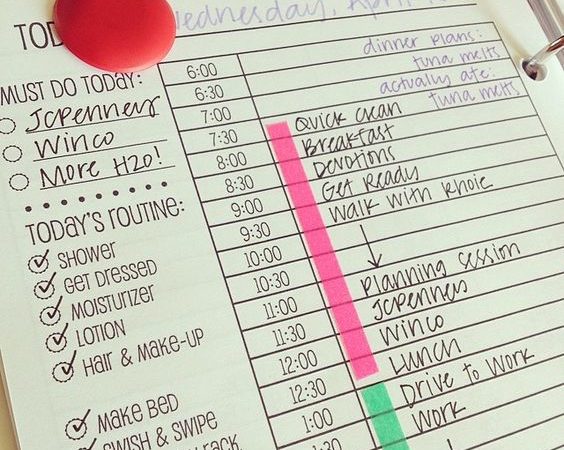 Wednesday, April
dinner plans:
tuna melts
actually ate:
tuna melts
MUST DO TODAY:
JCPenney
Winco
More H2O!
TODAY'S ROUTINE:
SHOWER
GET DRESSED
MOISTURIZER
LOTION
HAIR & MAKE-UP
MAKE BED
SWISH & SWIPE
6:00
6:30
7:00 Quick clean
7:30 Breakfast
8:00 Devotions
8:30 Get Ready
9:00 Walk with Rhoie
9:30
10:00
10:30 Planning session
11:00 JCPenneys
11:30 Winco
12:00 Lunch
12:30 Drive to work
1:00 Work